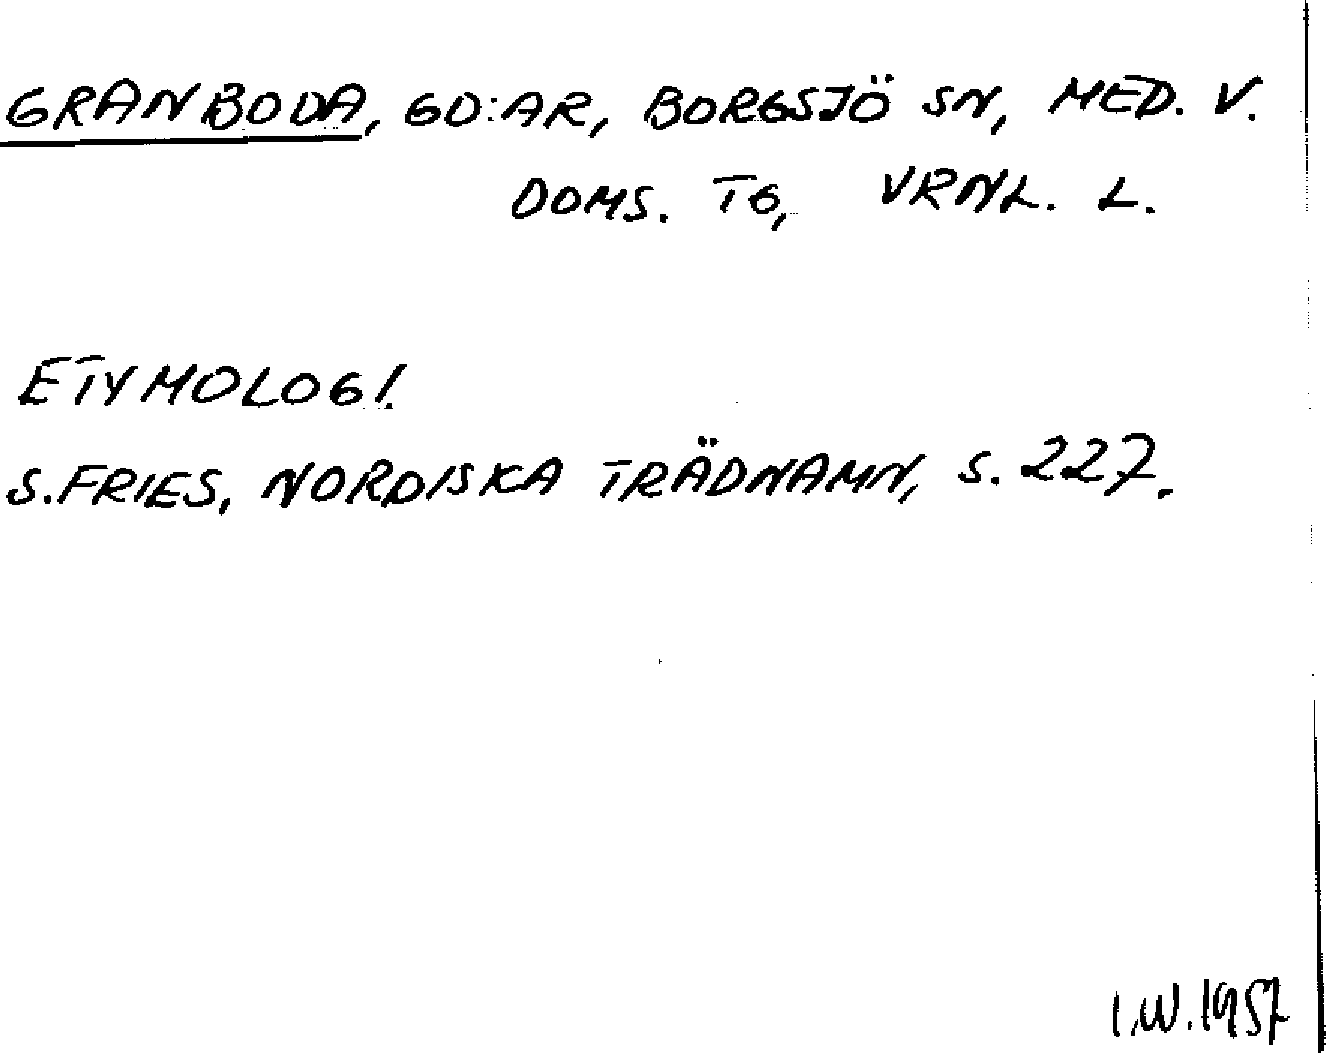 GRANBODA, GD:AR, BORGSJÖ SN, MED. V.
DOMS. TG, VRNL. L.
ETYMOLOGI.
S. FRIES, NORDISKA TRÄDNAMN, S. 227.
I.W. 1957